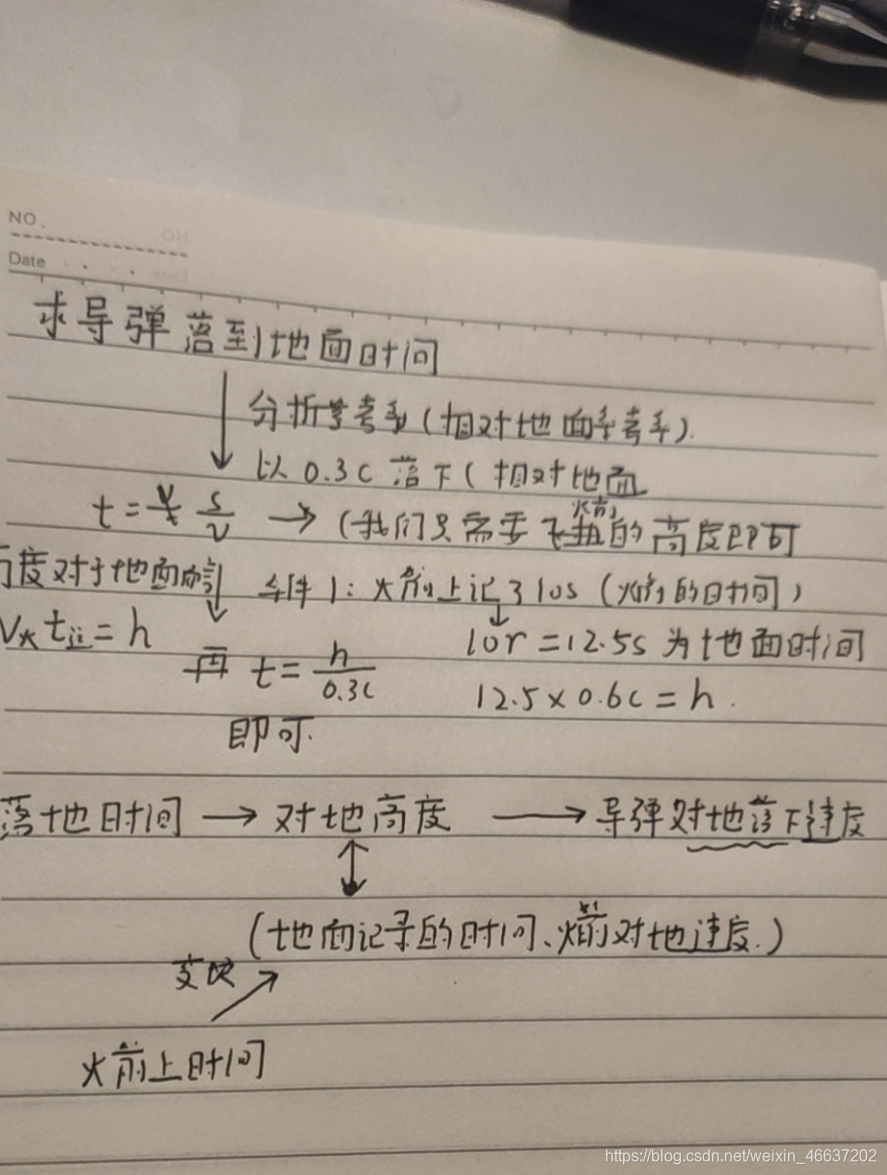 NO.
Date
求导弹落到地面时间
分析参考系(相对地面参考系).
以0.3c落下(相对地面
t = s/v → (我们只需要火箭的高度即可
高度对于地面而言 条件1:火箭上记了10s(火箭的时间)
V火 t地 = h 10r = 12.5s 为地面时间
再 t = h/0.3c 12.5×0.6c = h.
即可.
落地时间 → 对地高度 → 导弹对地落下速度
(地面记录的时间、火箭对地速度.)
变换
火箭上时间
https://blog.csdn.net/weixin_46637202